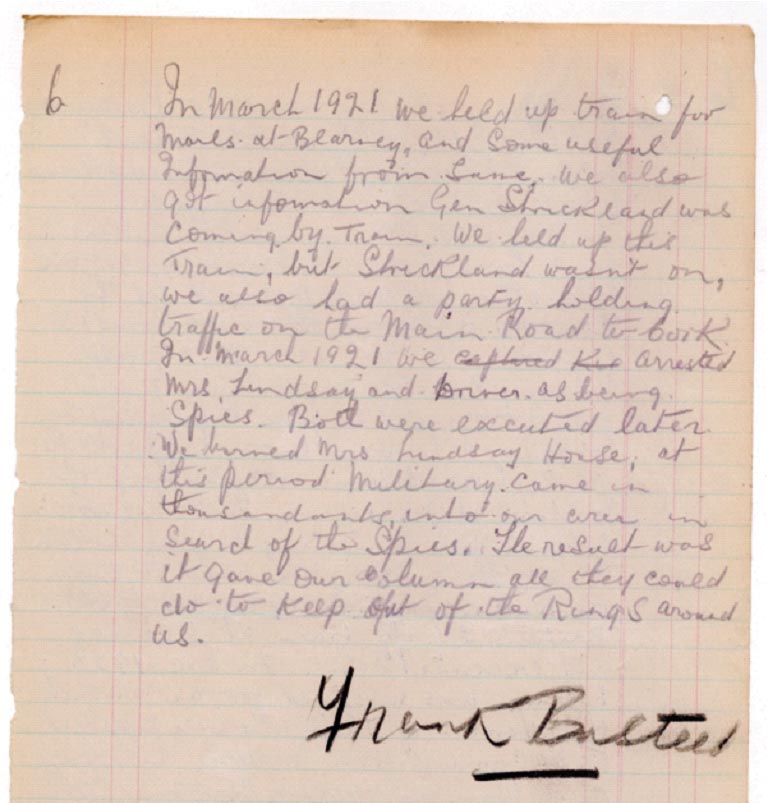 6
In March 1921 we held up train for
mails at Blarney, and some useful
Information from same. we also
got infomation Gen Strickland was
coming by Train. We held up this
Train, but Strickland wasn't on,
we also had a party holding
traffic on the Main Road to Cork
In March 1921 we captured arrested
Mrs. Lindsay and Driver. as being
Spies. Both were executed later.
We burned Mrs Lindsay House, at
this period Military. Came in
into our area in
search of the Spies. The result was
it gave our column all they could
do to Keep out of the Rings around
us.
Frank Busteed